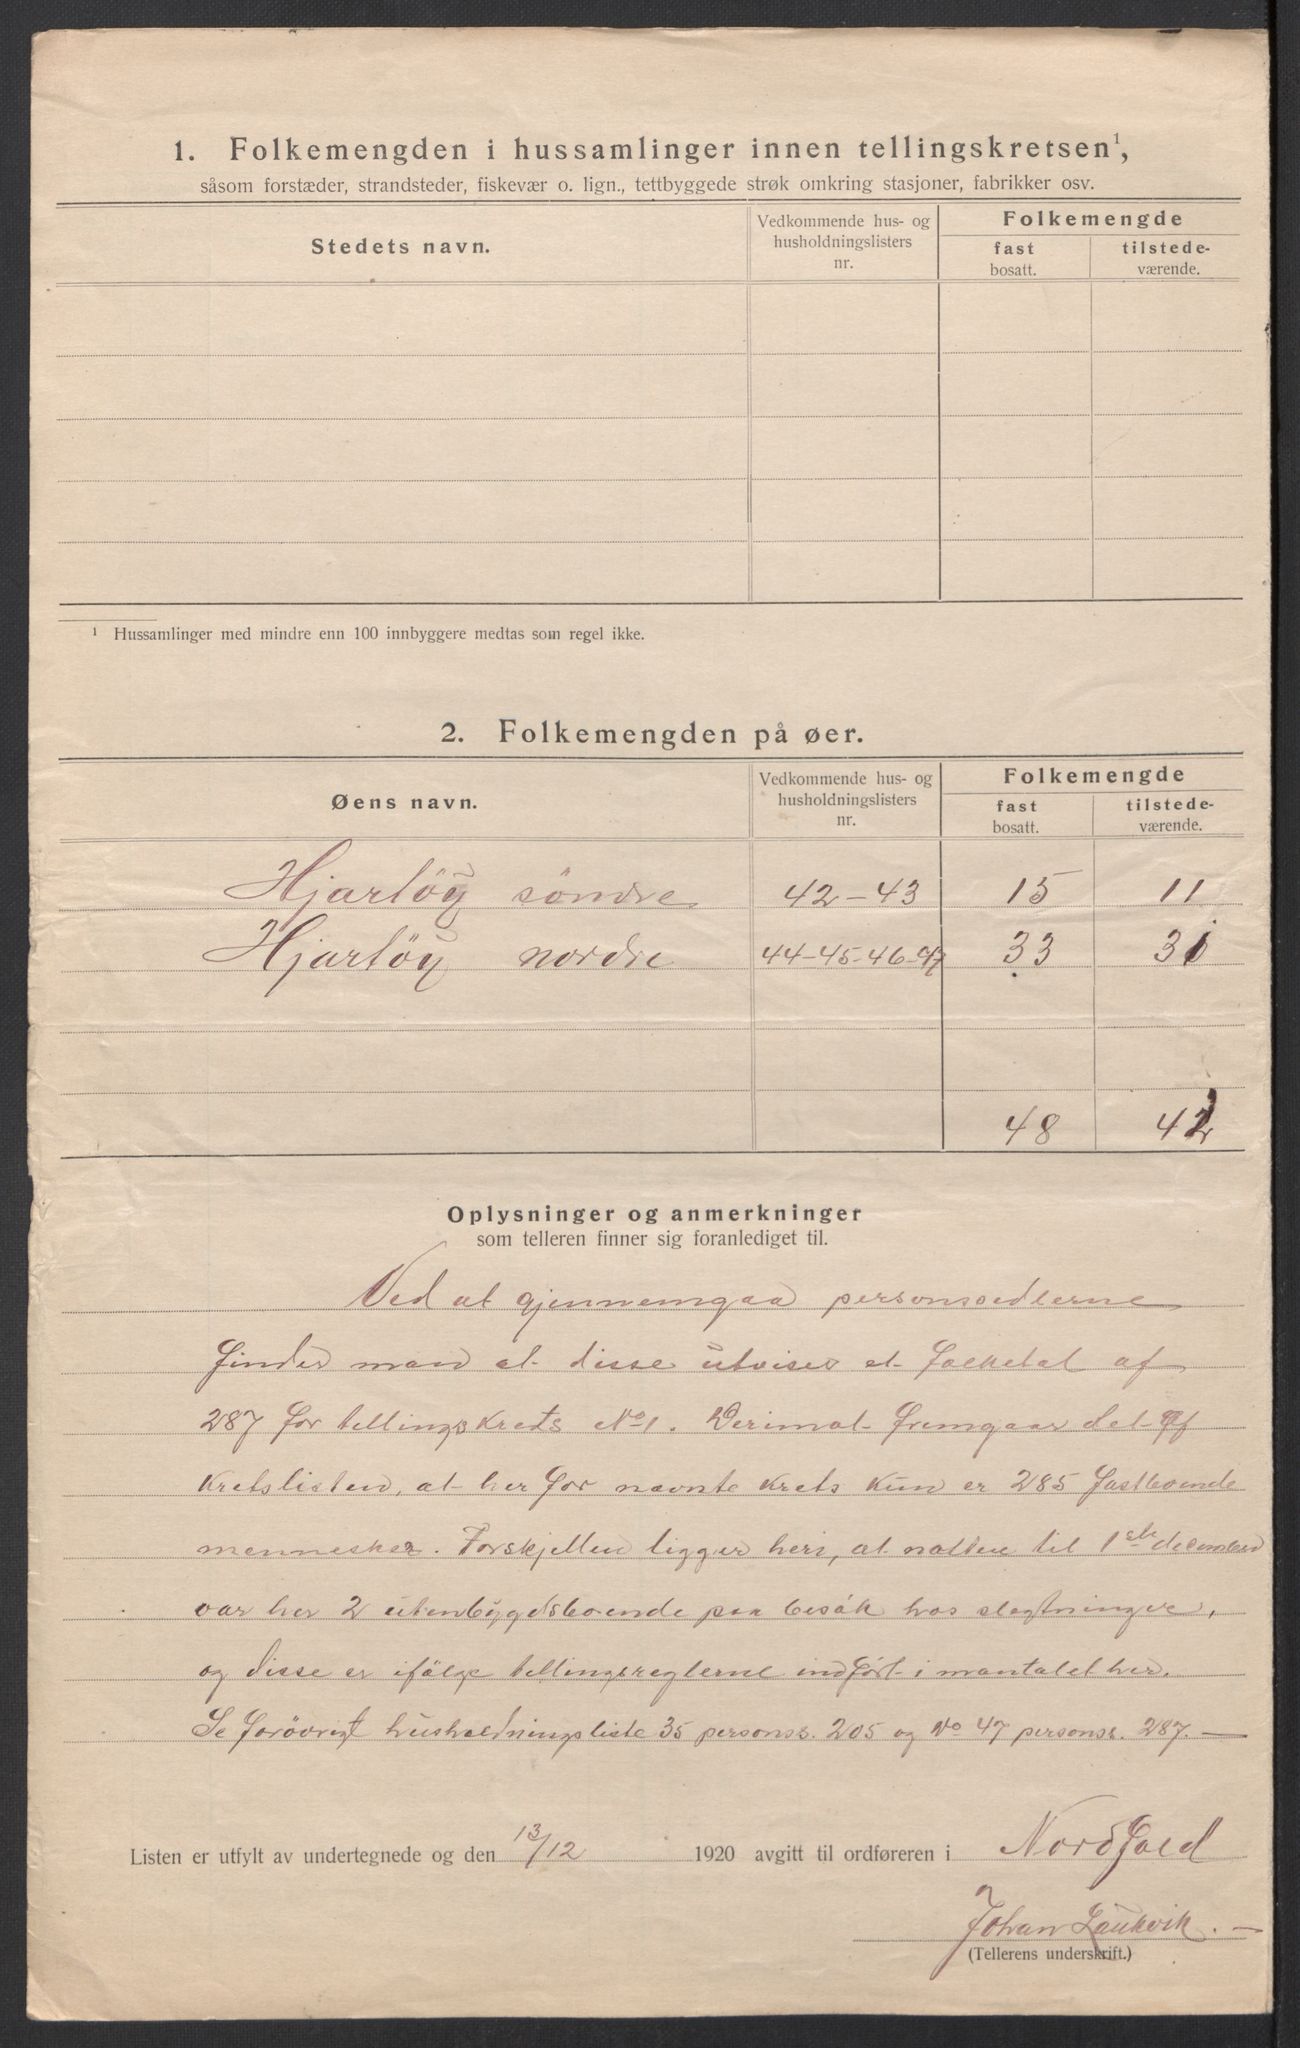 1. Folkemengden i hussamlinger innen tellingskretsen¹,
såsom forstæder, strandsteder, fiskevær o. lign., tettbyggede strøk omkring stasjoner, fabrikker osv.
Stedets navn.
Vedkommende hus- og husholdningslisters nr.
Folkemengde
fast bosatt.
tilstedeværende.
¹ Hussamlinger med mindre enn 100 innbyggere medtas som regel ikke.
2. Folkemengden på øer.
Øens navn.
Vedkommende hus- og husholdningslisters nr.
Folkemengde
fast bosatt.
tilstedeværende.
Hjartöy söndre 42-43 15 11
Hjartöy nordre 44-45-46-47 33 31
48 42
Oplysninger og anmerkninger
som telleren finner sig foranlediget til.
Ved at gjennemgaa personsedlerne
finder man at disse utviser et folketal af
287 for tellingskrets No 1. Derimot fremgaar det af
kretslisten, at her for nævnte krets kun er 285 fastboende
mennesker. Forskjellen ligger heri, at natten til 1ste december
var her 2 utenbygdsboende paa besök hos slegtninger,
og disse er ifölge tellingsreglerne indfört i mantalet her.
Se forövrigt husholdningsliste 35 personss. 205 og No 47 personss. 287. —
Listen er utfylt av undertegnede og den 13/12 1920 avgitt til ordføreren i Nordfold
Johan Laukvik. —
(Tellerens underskrift.)